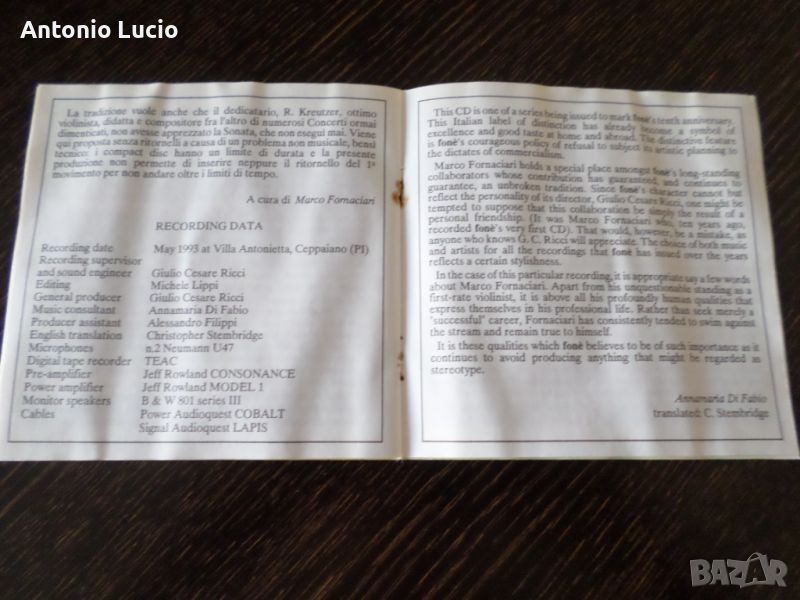 Antonio Lucio
La tradizione vuole anche che il dedicatario, R. Kreutzer, ottimo
violinista, didatta e compositore fra l'altro di numerosi Concerti ormai
dimenticati, non avesse apprezzato la Sonata, che non eseguì mai. Viene
qui proposta senza ritornelli a causa di un problema non musicale, bensì
tecnico: i compact disc hanno un limite di durata e la presente
produzione non permette di inserire neppure il ritornello del 1º
movimento per non andare oltre i limiti di tempo.
A cura di Marco Fornaciari
RECORDING DATA
Recording date May 1993 at Villa Antonietta, Ceppaiano (PI)
Recording supervisor
and sound engineer Giulio Cesare Ricci
Editing Michele Lippi
General producer Giulio Cesare Ricci
Music consultant Annamaria Di Fabio
Producer assistant Alessandro Filippi
English translation Christopher Stembridge
Microphones n.2 Neumann U47
Digital tape recorder TEAC
Pre-amplifier Jeff Rowland CONSONANCE
Power amplifier Jeff Rowland MODEL 1
Monitor speakers B & W 801 series III
Cables Power Audioquest COBALT
Signal Audioquest LAPIS
This CD is one of a series being issued to mark fonè's tenth anniversary.
This Italian label of distinction has already become a symbol of
excellence and good taste at home and abroad. The distinctive feature
is fonè's courageous policy of refusal to subject its artistic planning to
the dictates of commercialism.
Marco Fornaciari holds a special place amongst fonè's long-standing
collaborators whose contribution has guaranteed, and continues to
guarantee, an unbroken tradition. Since fonè's character cannot but
reflect the personality of its director, Giulio Cesare Ricci, one might be
tempted to suppose that this collaboration be simply the result of a
personal friendship. (It was Marco Fornaciari who, ten years ago,
recorded fonè's very first CD). That would, however, be a mistake, as
anyone who knows G.C. Ricci will appreciate. The choice of both music
and artists for all the recordings that fonè has issued over the years
reflects a certain stylishness.
In the case of this particular recording, it is appropriate say a few words
about Marco Fornaciari. Apart from his unquestionable standing as a
first-rate violinist, it is above all his profoundly human qualities that
express themselves in his professional life. Rather than seek merely a
"successful" career, Fornaciari has consistently tended to swim against
the stream and remain true to himself.
It is these qualities which fonè believes to be of such importance as it
continues to avoid producing anything that might be regarded as
stereotype.
Annamaria Di Fabio
translated: C. Stembridge
BAZAR